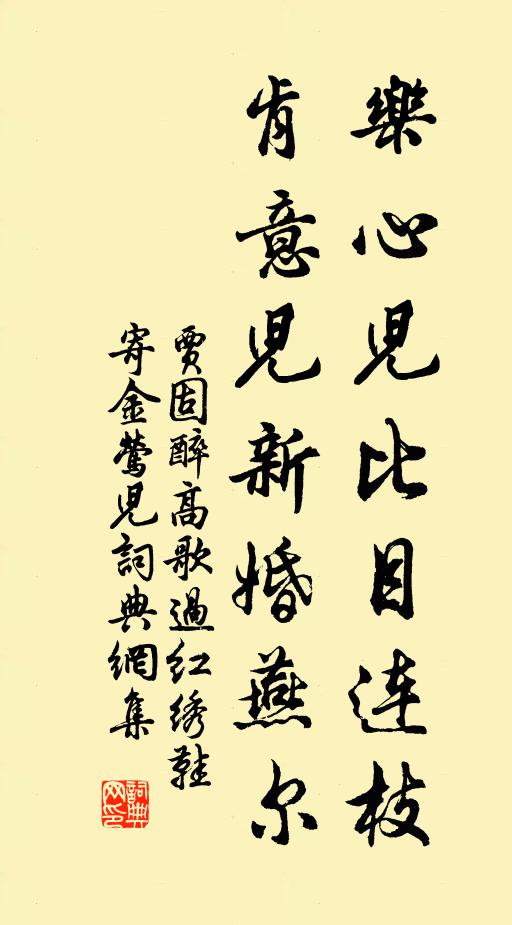 樂心兒比目连枝
肯意兒新婚燕尔
賈固醉高歌過红绣鞋
寄金鶯兒詞典網集
詞典网印